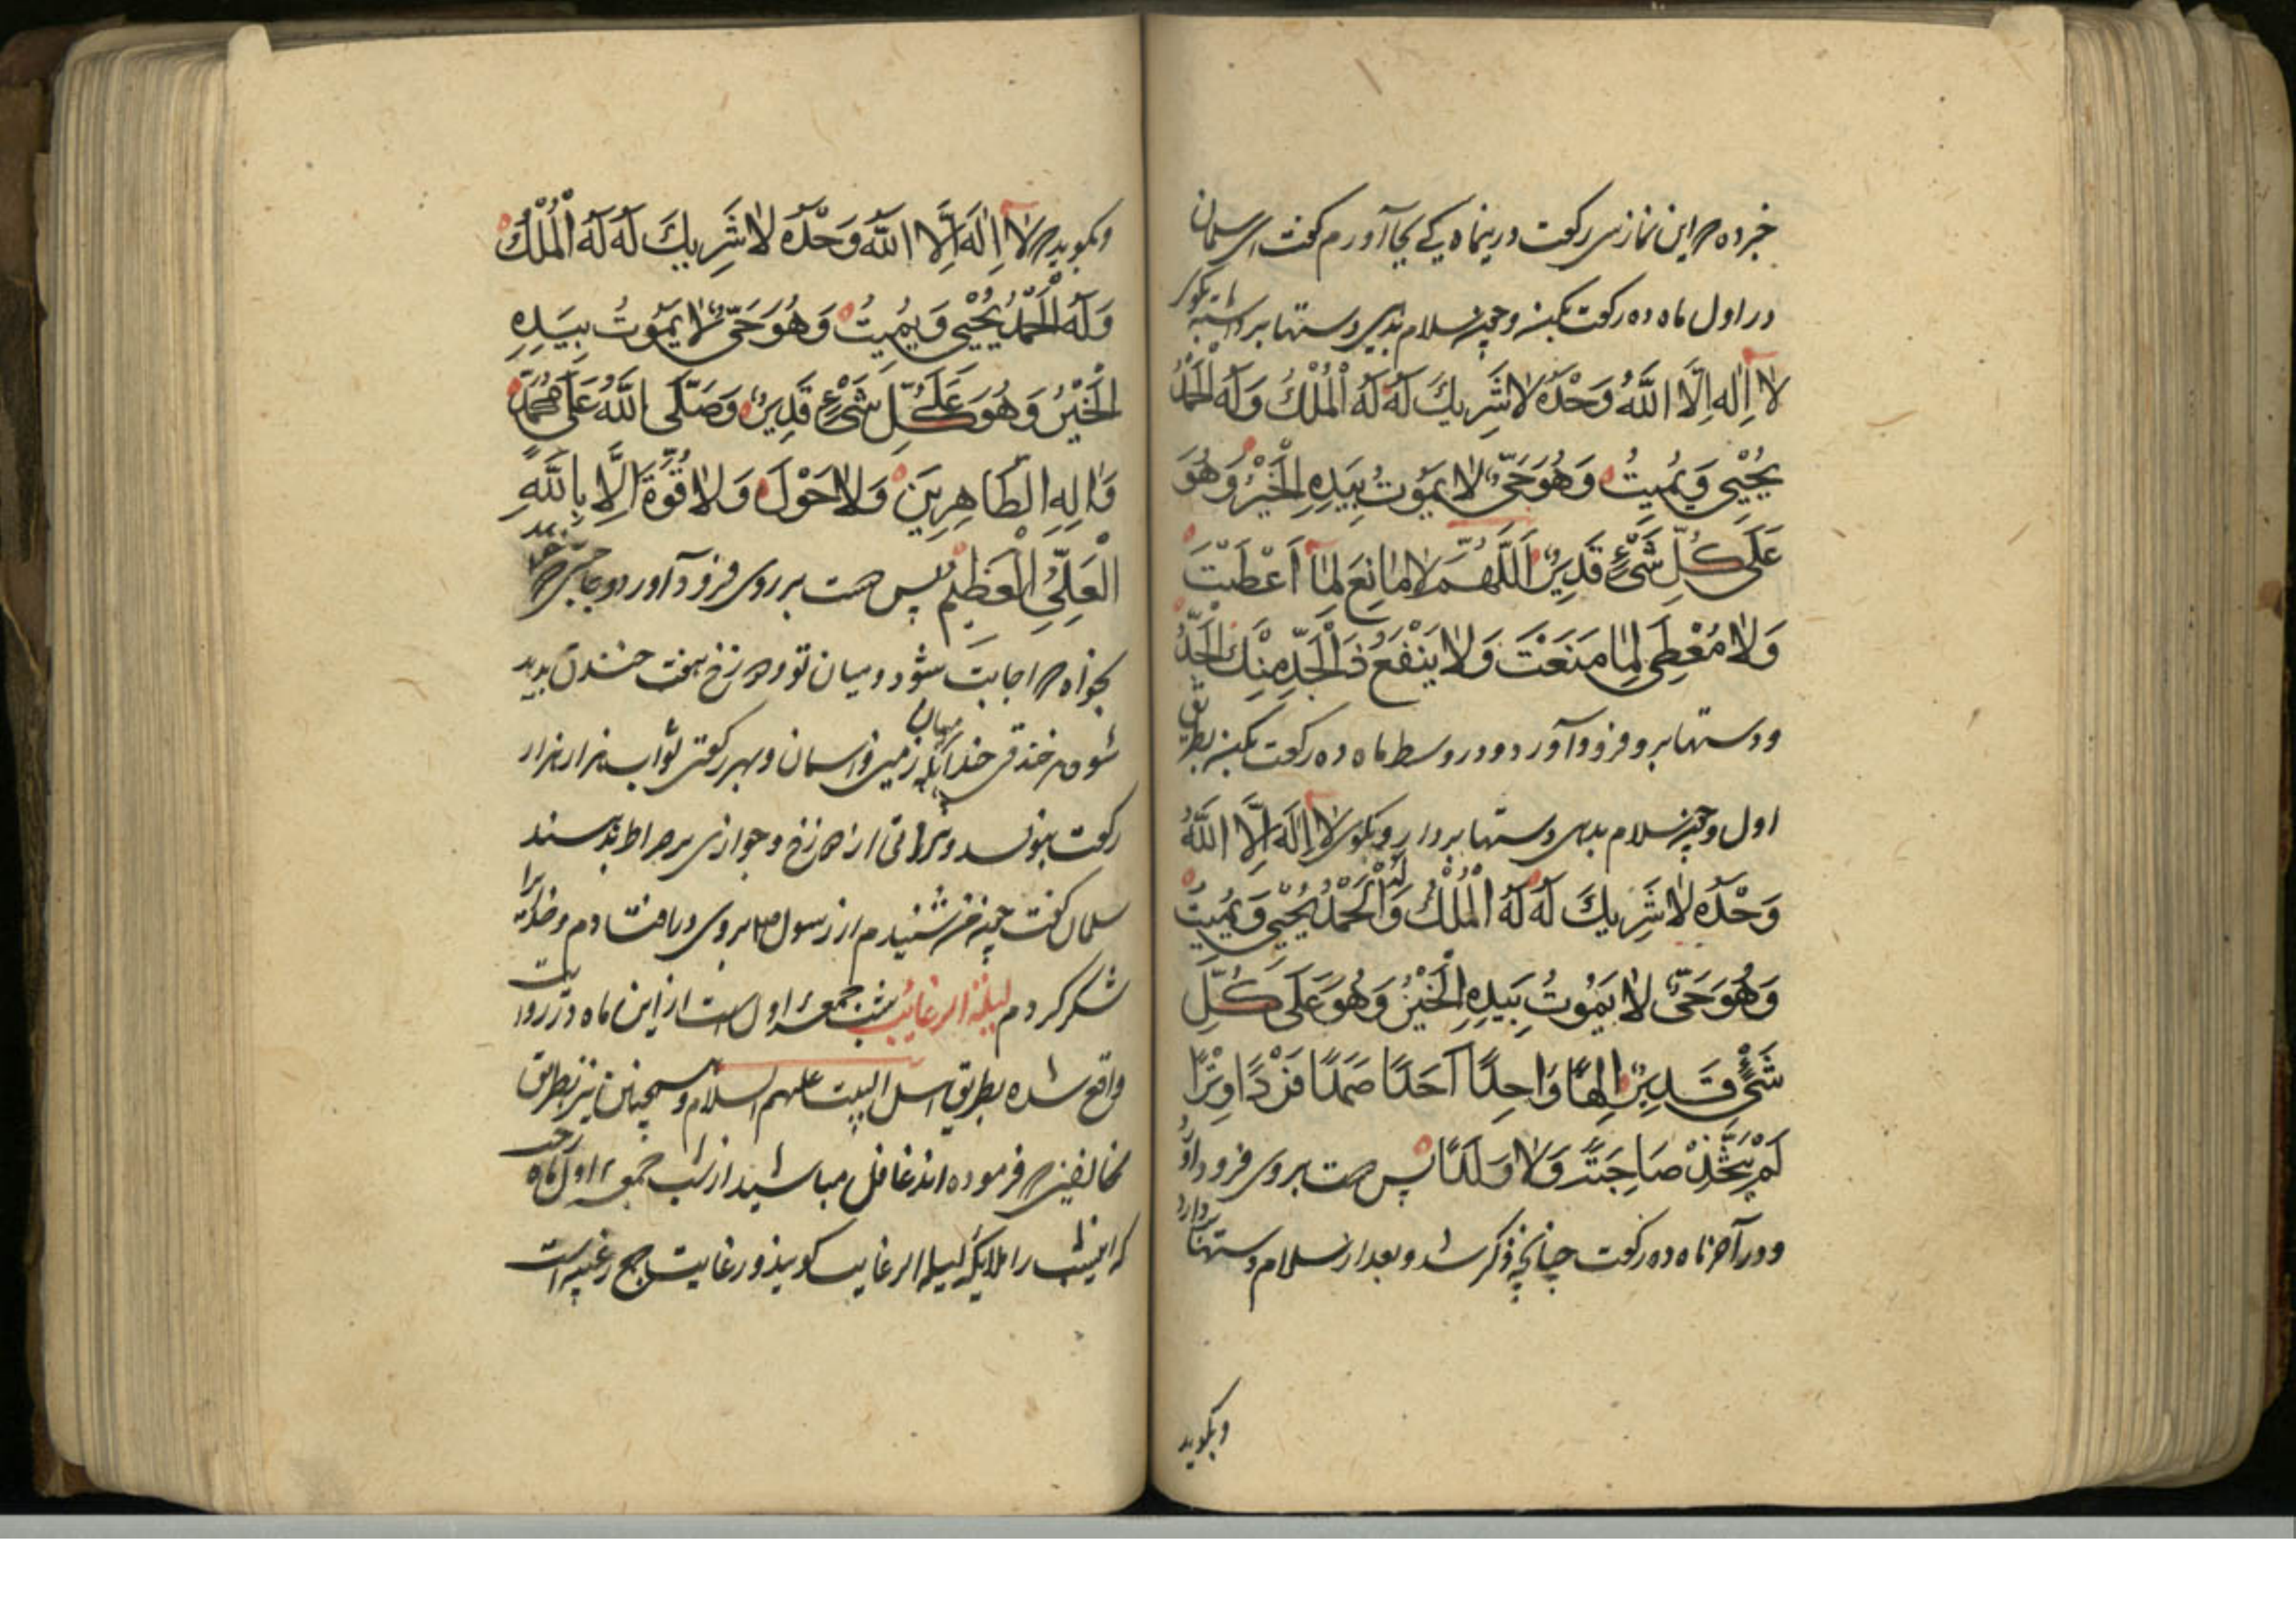 خبر ده که این نماز سی رکعت درینماه کی بجا آورم گفت ای سلمان
در اول ماه ده رکعت بکن و چون سلام بدهی دستها برداشته بگو که
لا اِلٰه اِلَّا اللَّهُ وَحْدَهُ لا شَرِیكَ لَهُ لَهُ الْمُلْكُ وَلَهُ الْحَمْدُ
یُحْیِی وَیُمِیتُ وَهُوَ حَیٌّ لا یَمُوتُ بِیَدِهِ الْخَیْرُ وَهُوَ
عَلَی كُلِّ شَیْءٍ قَدِیرٌ اَللَّهُمَّ لا مانِعَ لِمٰا اَعْطَیْتَ
وَلٰا مُعْطِیَ لِمٰا مَنَعْتَ وَلا یَنْفَعُ ذَا الْجَدِّ مِنْكَ الْجَدُّ
و دستها برو فرود آورد و در وسط ماه ده رکعت بکن بطریق
اول و چون سلام بدهی دستها بردار و بگوی لا اِلَهَ اِلَّا اللَّهُ
وَحْدَهُ لٰا شَرِیكَ لَهُ لَهُ الْمُلْكُ وَلَهُ الْحَمْدُ یُحْیِی وَیُمِیتُ
وَهُوَ حَیٌّ لٰا یَمُوتُ بِیَدِهِ الْخَیْرُ وَهُوَ عَلَی كُلِّ
شَیْءٍ قَدِیرٌ اِلهًا وَاحِدًا اَحَدًا صَمَدًا فَرْدًا وِتْرًا
لَمْ یَتَّخِذْ صَاحِبَتً وَلٰا وَلَدًا پس دست بروی فرود آورد
و در آخر ماه ده رکعت چنانچه ذکر شد و بعد از سلام دستها بردارد
و بگوید
و بگوید که لٰا اِلَهَ اِلَّا اللَّهُ وَحْدَهُ لٰا شَرِیكَ لَهُ لَهُ الْمُلْكُ
وَلَهُ الْحَمْدُ یُحْیِی وَیُمِیتُ وَهُوَ حَیٌّ لٰا یَمُوتُ بِیَدِهِ
الْخَیْرُ وَهُوَ عَلَی كُلِّ شَیْءٍ قَدِیرٌ وَصَلَّی اللَّهُ عَلَی مُحَمَّدٍ
وَاٰلِهِ الطَّاهِرِینَ وَلٰا حَوْلَ وَلٰا قُوَّةَ اِلَّا بِاللَّهِ
الْعَلِیِّ الْعَظِیمِ پس دست بر روی فرود آورد و حاجتی که
بخواه که اجابت شود و میان تو و دوزخ هفت خندق پدید
شود هر خندقی چندانکه میان زمین و آسمان و بهر رکعتی ثواب هزار هزار
رکعت بنویسد و براتی از دوزخ و جوازی بر صراط بنویسند
سلمان گفت چون شنیدم از رسول ص بروی در افتادم و خدایرا
شکر کردم لیلة الرغایب شب جمعه اول است از این ماه و در روایت
واقع شده بطریق اهل البیت علیهم السلام و همچنین نیز بطریق
مخالفین که فرموده اند غافل مباشید از شب جمعه اول ماه رجب
که اینشب را ملایکه لیلة الرغایب گویند و رغایب جمع رغیبه است